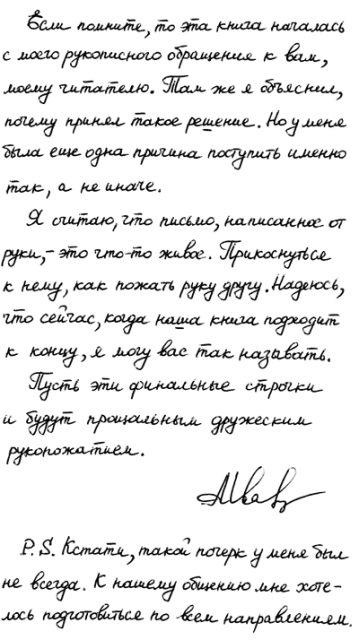 Если помните, то эта книга началась
с моего рукописного обращения к вам,
моему читателю. Там же я объяснил,
почему принял такое решение. Но у меня
была еще одна причина поступить именно
так, а не иначе.
Я считаю, что письмо, написанное от
руки, – это что-то живое. Прикоснуться
к нему, как пожать руку другу. Надеюсь,
что сейчас, когда наша книга подходит
к концу, я могу вас так называть.
Пусть эти финальные строчки
и будут прощальным дружеским
рукопожатием.
P.S. Кстати, такой почерк у меня был
не всегда. К нашему общению мне хоте-
лось подготовиться по всем направлениям.